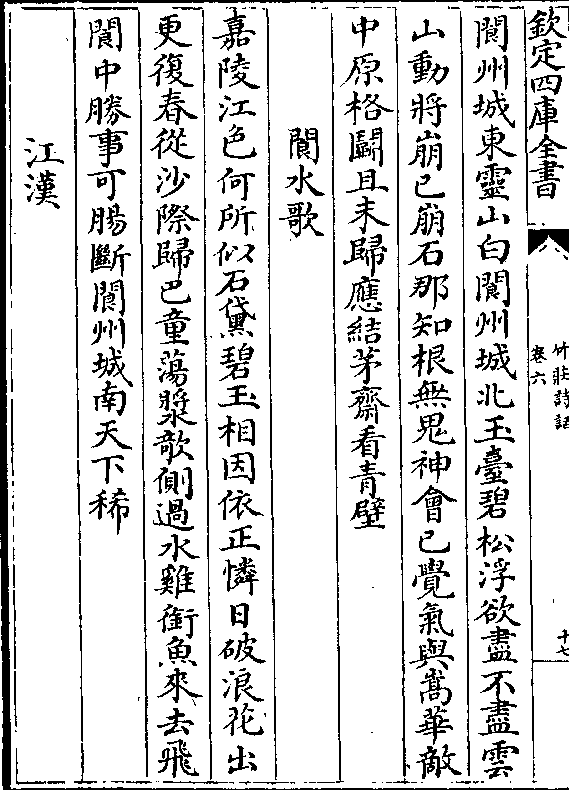 欽定四庫全書
竹莊詩話
卷六
十七
閬州城東靈山白閬州城北玉臺碧松浮欲盡不盡雲
山動將崩已崩石那知根無鬼神會已覺氣與嵩華敵
中原格鬭且未歸應結茅齋看青壁
閬水歌
嘉陵江色何所似石黛碧玉相因依正憐日破浪花出
更復春從沙際歸巴童蕩槳欹側過水雞銜魚來去飛
閬中勝事可腸斷閬州城南天下稀
江漢